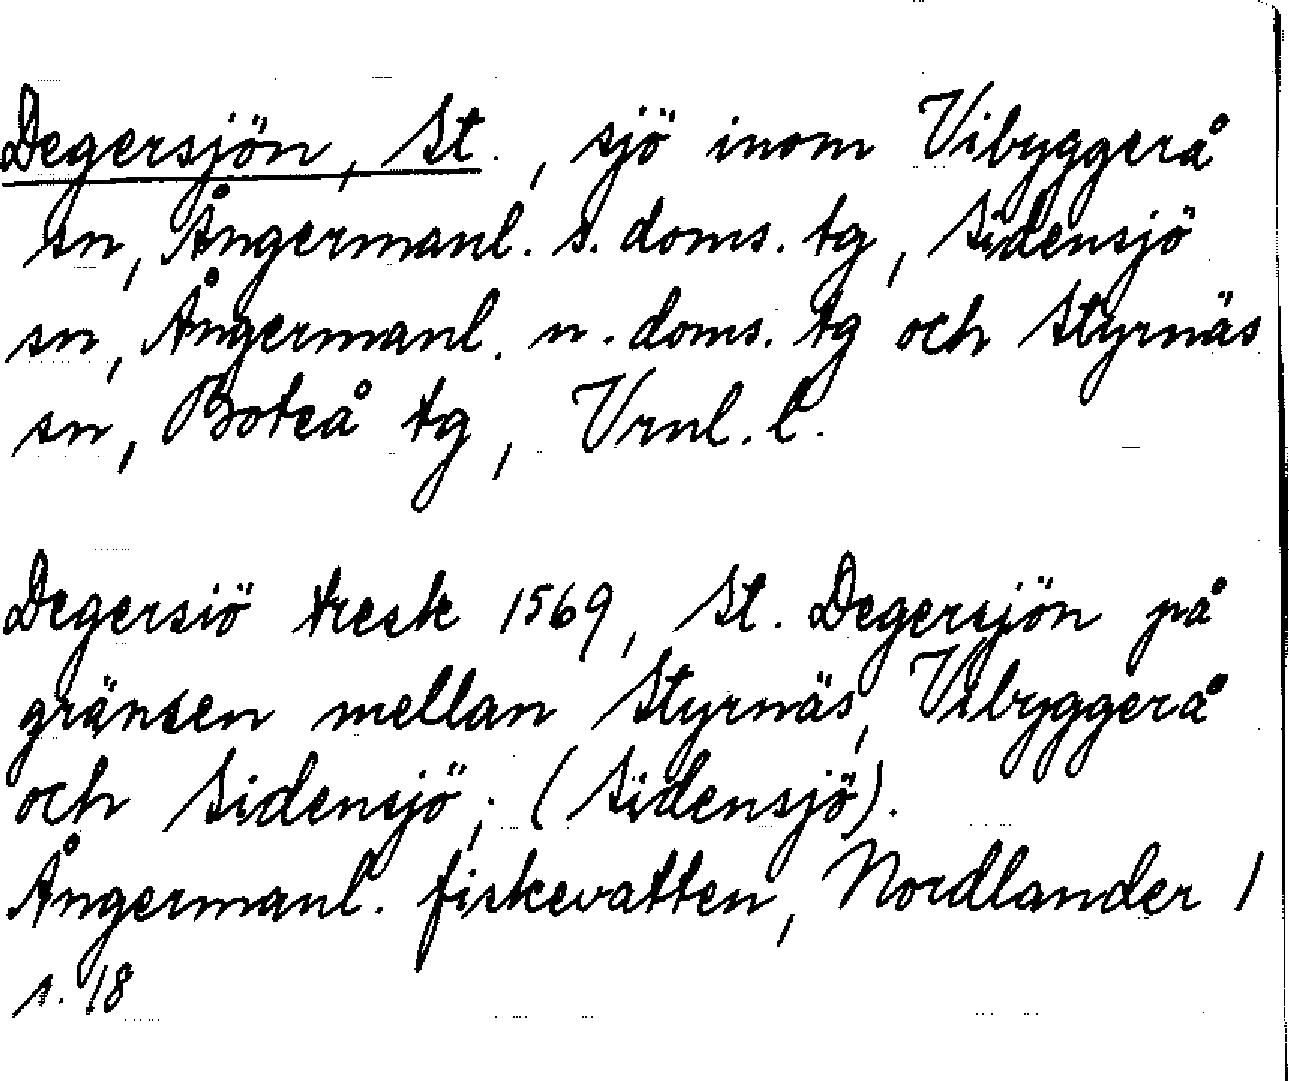 Degersjön, St., sjö inom Vibyggerå
sn, Ångermanl. s. doms. tg, Sidensjö
sn, Ångermanl. n. doms. tg och Styrnäs
sn, Boteå tg, Vrnl. l.
Degersiö tresk 1569, St. Degersjön på
gränsen mellan Styrnäs, Vibyggerå
och Sidensjö; (Sidensjö).
Ångermanl. fiskevatten, Nordlander 1
s. 18